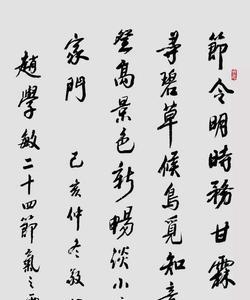 節令明時務甘霖
尋碧草候鳥覓知音
登高景色新暢談小
家門
己亥仲冬敬
趙學敏二十四節氣之